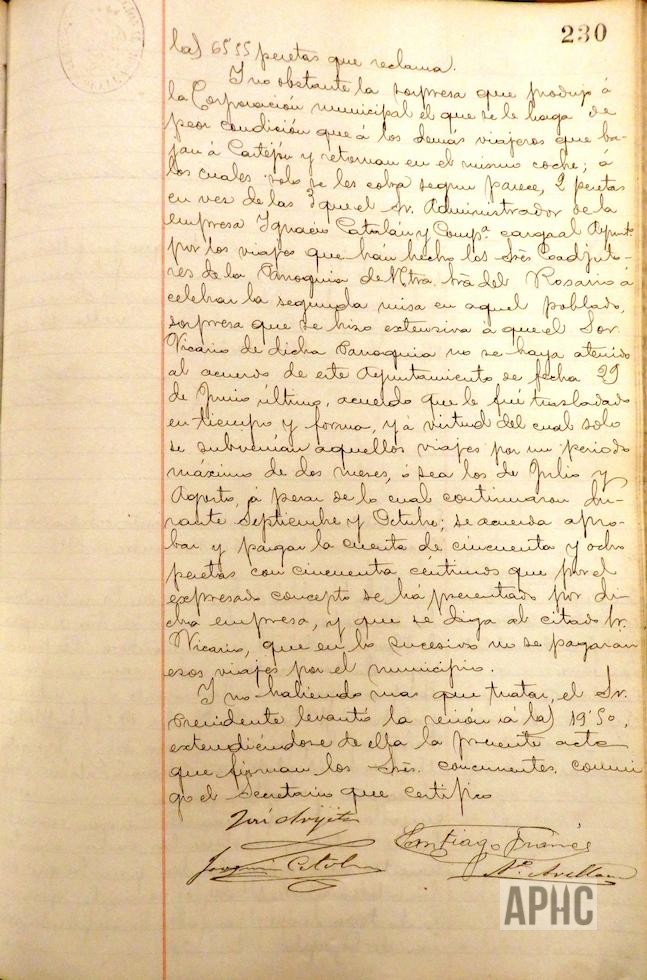 230
las 65'55 pesetas que reclama.
Y no obstante la sorpresa que produjo á
la Corporación municipal el que se le haga de
peor condición que á los demás viajeros que ba-
jan á Castejón y retornan en el mismo coche; á
los cuales solo se les cobra segun parece, 2 pesetas
en vez de las 3 que el Sr. Administrador de la
empresa Ignacio Catalán y Compª. carga al Ayuntº.
por los viajes que han hecho los Sres Coadjuto-
res de la Parroquia de Ntra. Sra del Rosario á
celebrar la segunda misa en aquel poblado,
sorpresa que se hizo extensiva á que el Sor.
Vicario de dicha Parroquia no se haya atenido
al acuerdo de este Ayuntamiento de fecha 29
de Junio último, acuerdo que le fué trasladado
en tiempo y forma, y á virtud del cual solo
se subvenían aquellos viajes por un periodo
máximo de dos meses, ó sea los de Julio y
Agosto, á pesar de lo cual continuaron du-
rante Septiembre y Octubre; se acuerda apro-
bar y pagar la cuenta de cincuenta y ocho
pesetas con cincuenta céntimos que por el
expresado concepto se ha presentado por di-
cha empresa, y que se diga al citado Sr.
Vicario, que en lo sucesivo no se pagaran
esos viajes por el municipio.
Y no habiendo mas que tratar, el Sr.
Presidente levantó la sesión á las 19'50,
extendiéndose de ella la presente acta
que firman los Sres. concurrentes conmi-
go el Secretario que certifico
José
Santiago Francés
Joaquin
APHC